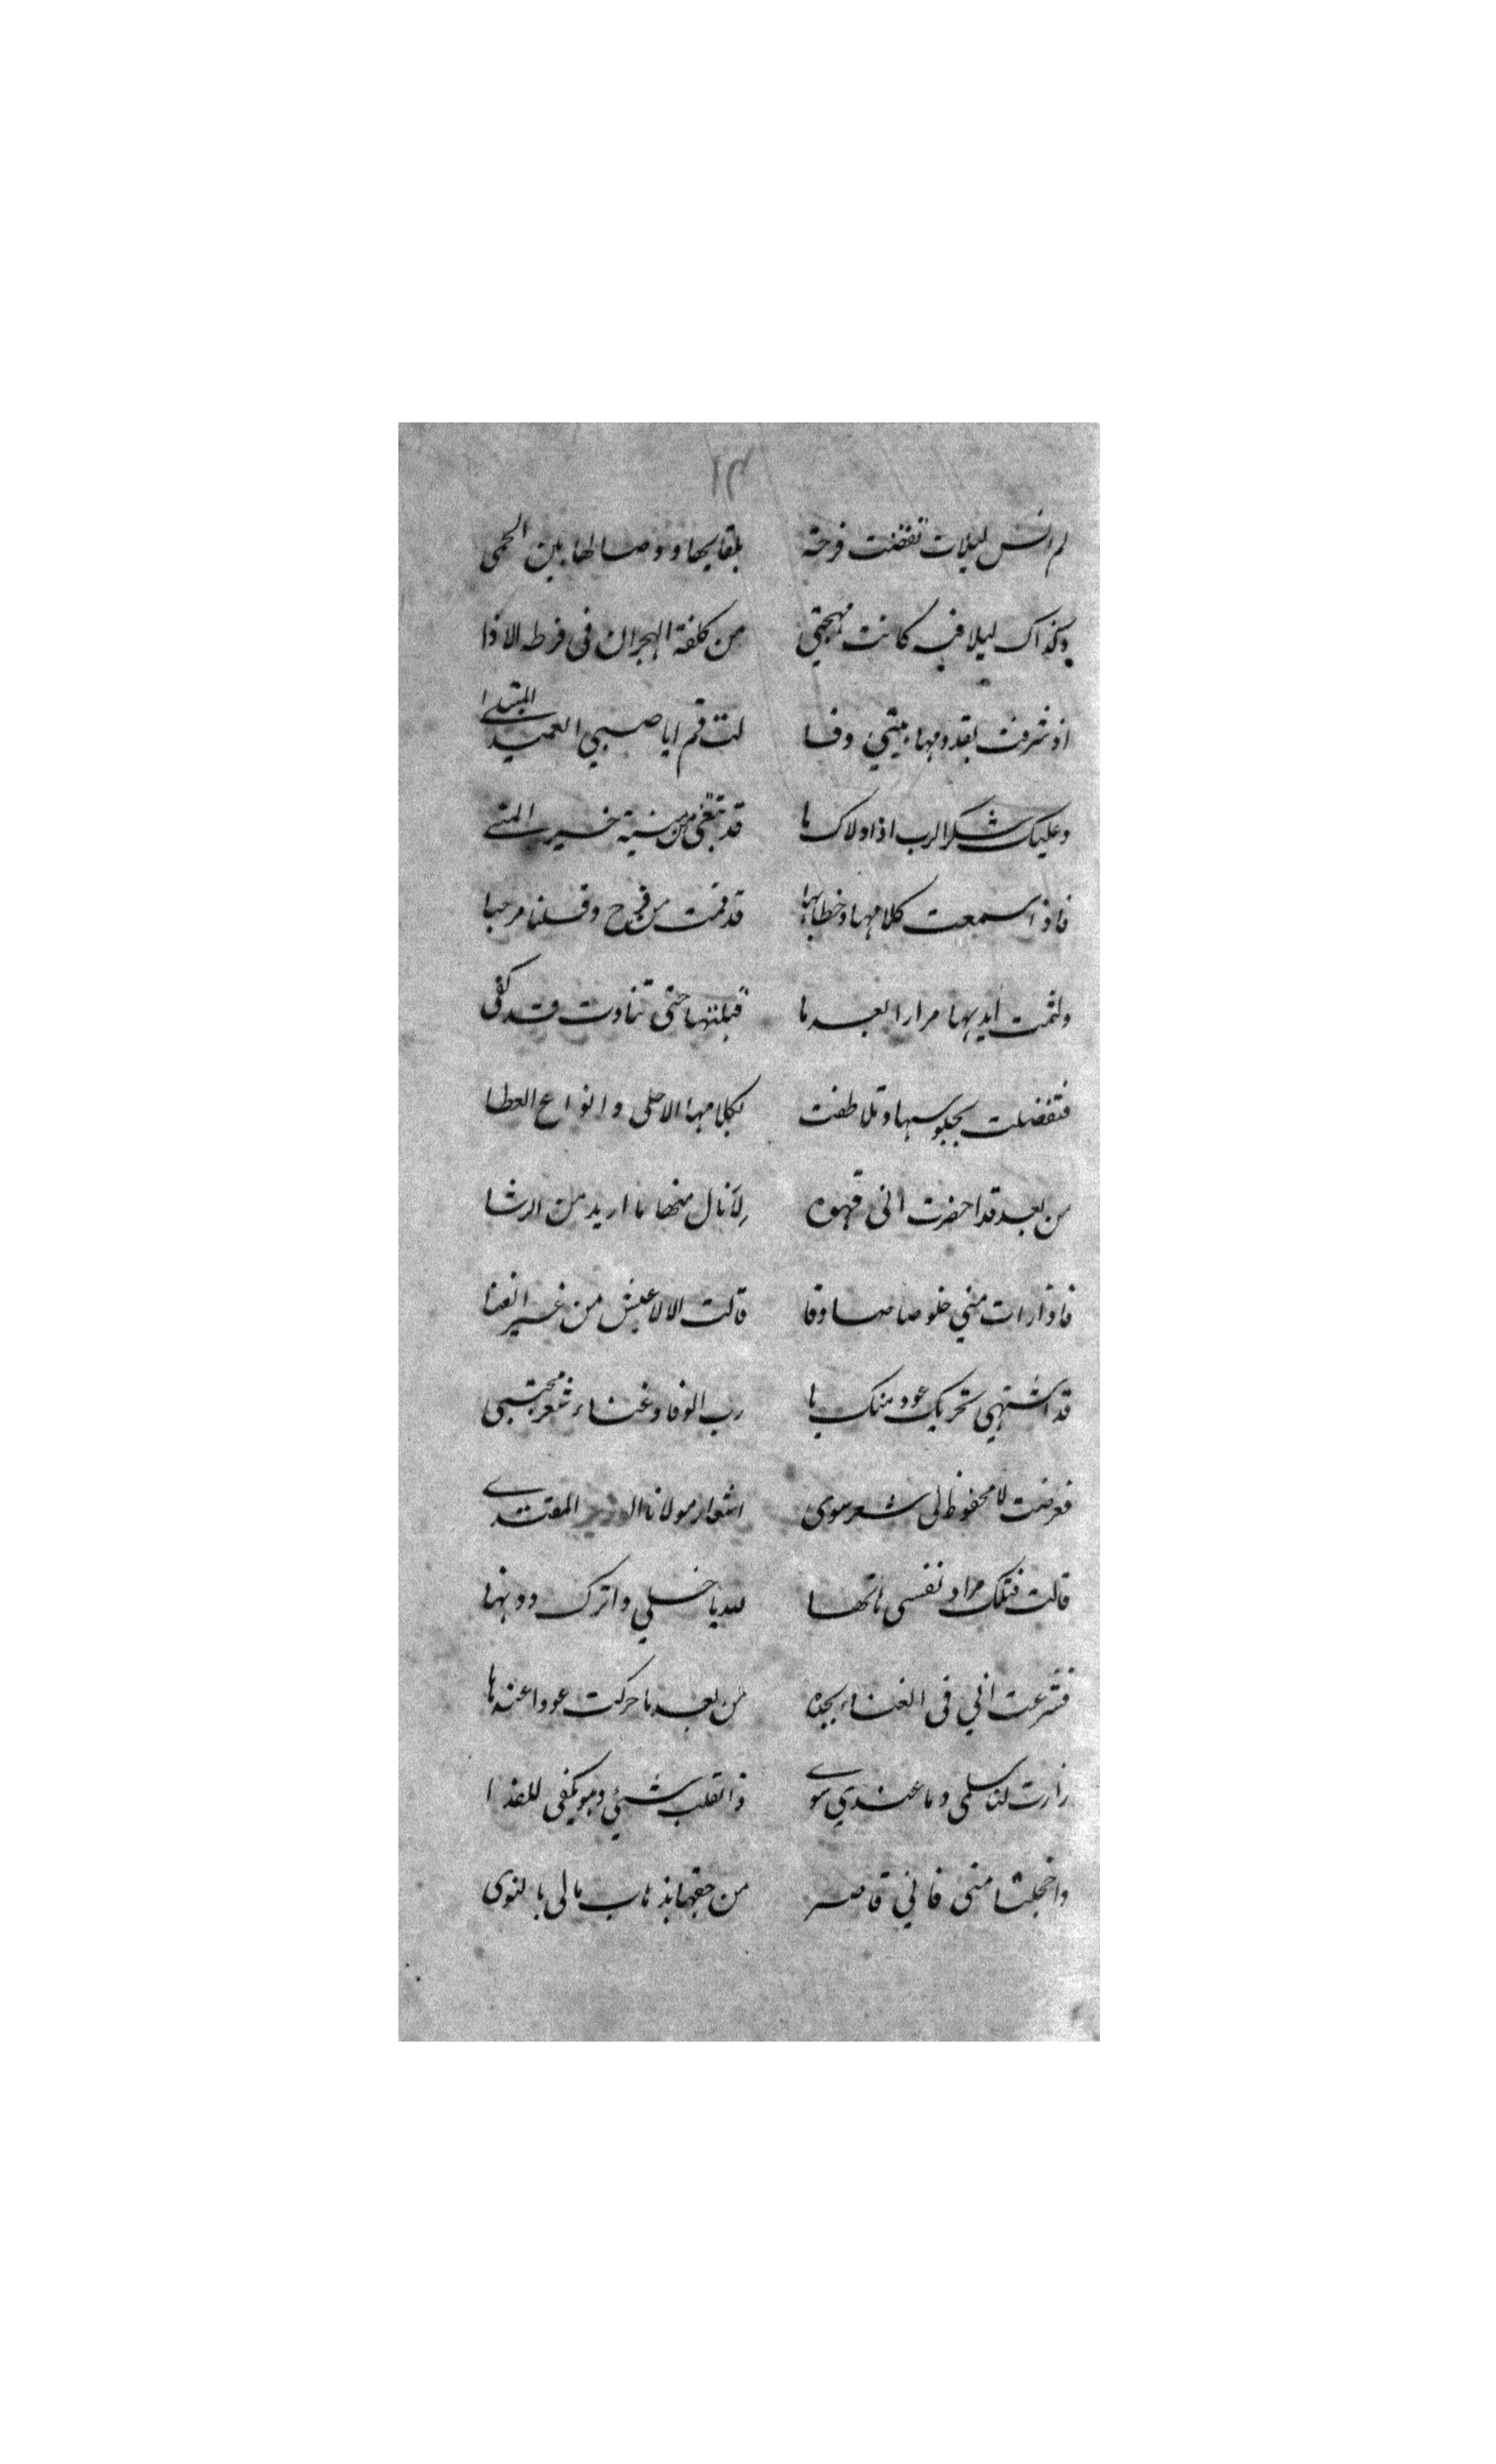 ١٣
لم انس ليلات تقضت فرحة بلقايها ووصالها بين الحمى
وكذاك ليلا فيه كانت مهجتي من كلفة الهجران فى فرط الاذا
اذ شرفت بقدومها بيتي وقا لت قم ايا صبي العميد المبتلى
وعليك شكر الرب اذ اولاك ما قد تبتغي من منية خير المنى
فاذا سمعت كلامها وخطابها قد قمت من فرح وقلنا مرحبا
ولثمت ايديها مرارا بعد ما قبلتها حتى تنادت قد كفى
فتفضلت بجلوسها وتلاطفت بكلامها الاحلى وانواع العطا
من بعد قد احضرت انى قهوه لانال منها ما اريد من الرشا
فاذا رات مني خلوصا صادقا قالت الا لا عيش من غير الغنا
قد اشتهي تحريك عود منك يا رب الوفا وغناء شعر مجتبى
فعرضت لا محفوظ لى شعر سوى اشعار مولانا المقتدى
قالت فتلك مراد نفسى هاتها لله يا خلي واترك دونها
فشرعت اني فى الغناء بجده من بعد ما حركت عودا عندها
زارت لنا سلمى وما عندي سوى ذا القلب شئي وهو يكفى للفدا
واخجلتا منى فاني قاصر من حقها بذهاب مالى بالنوى